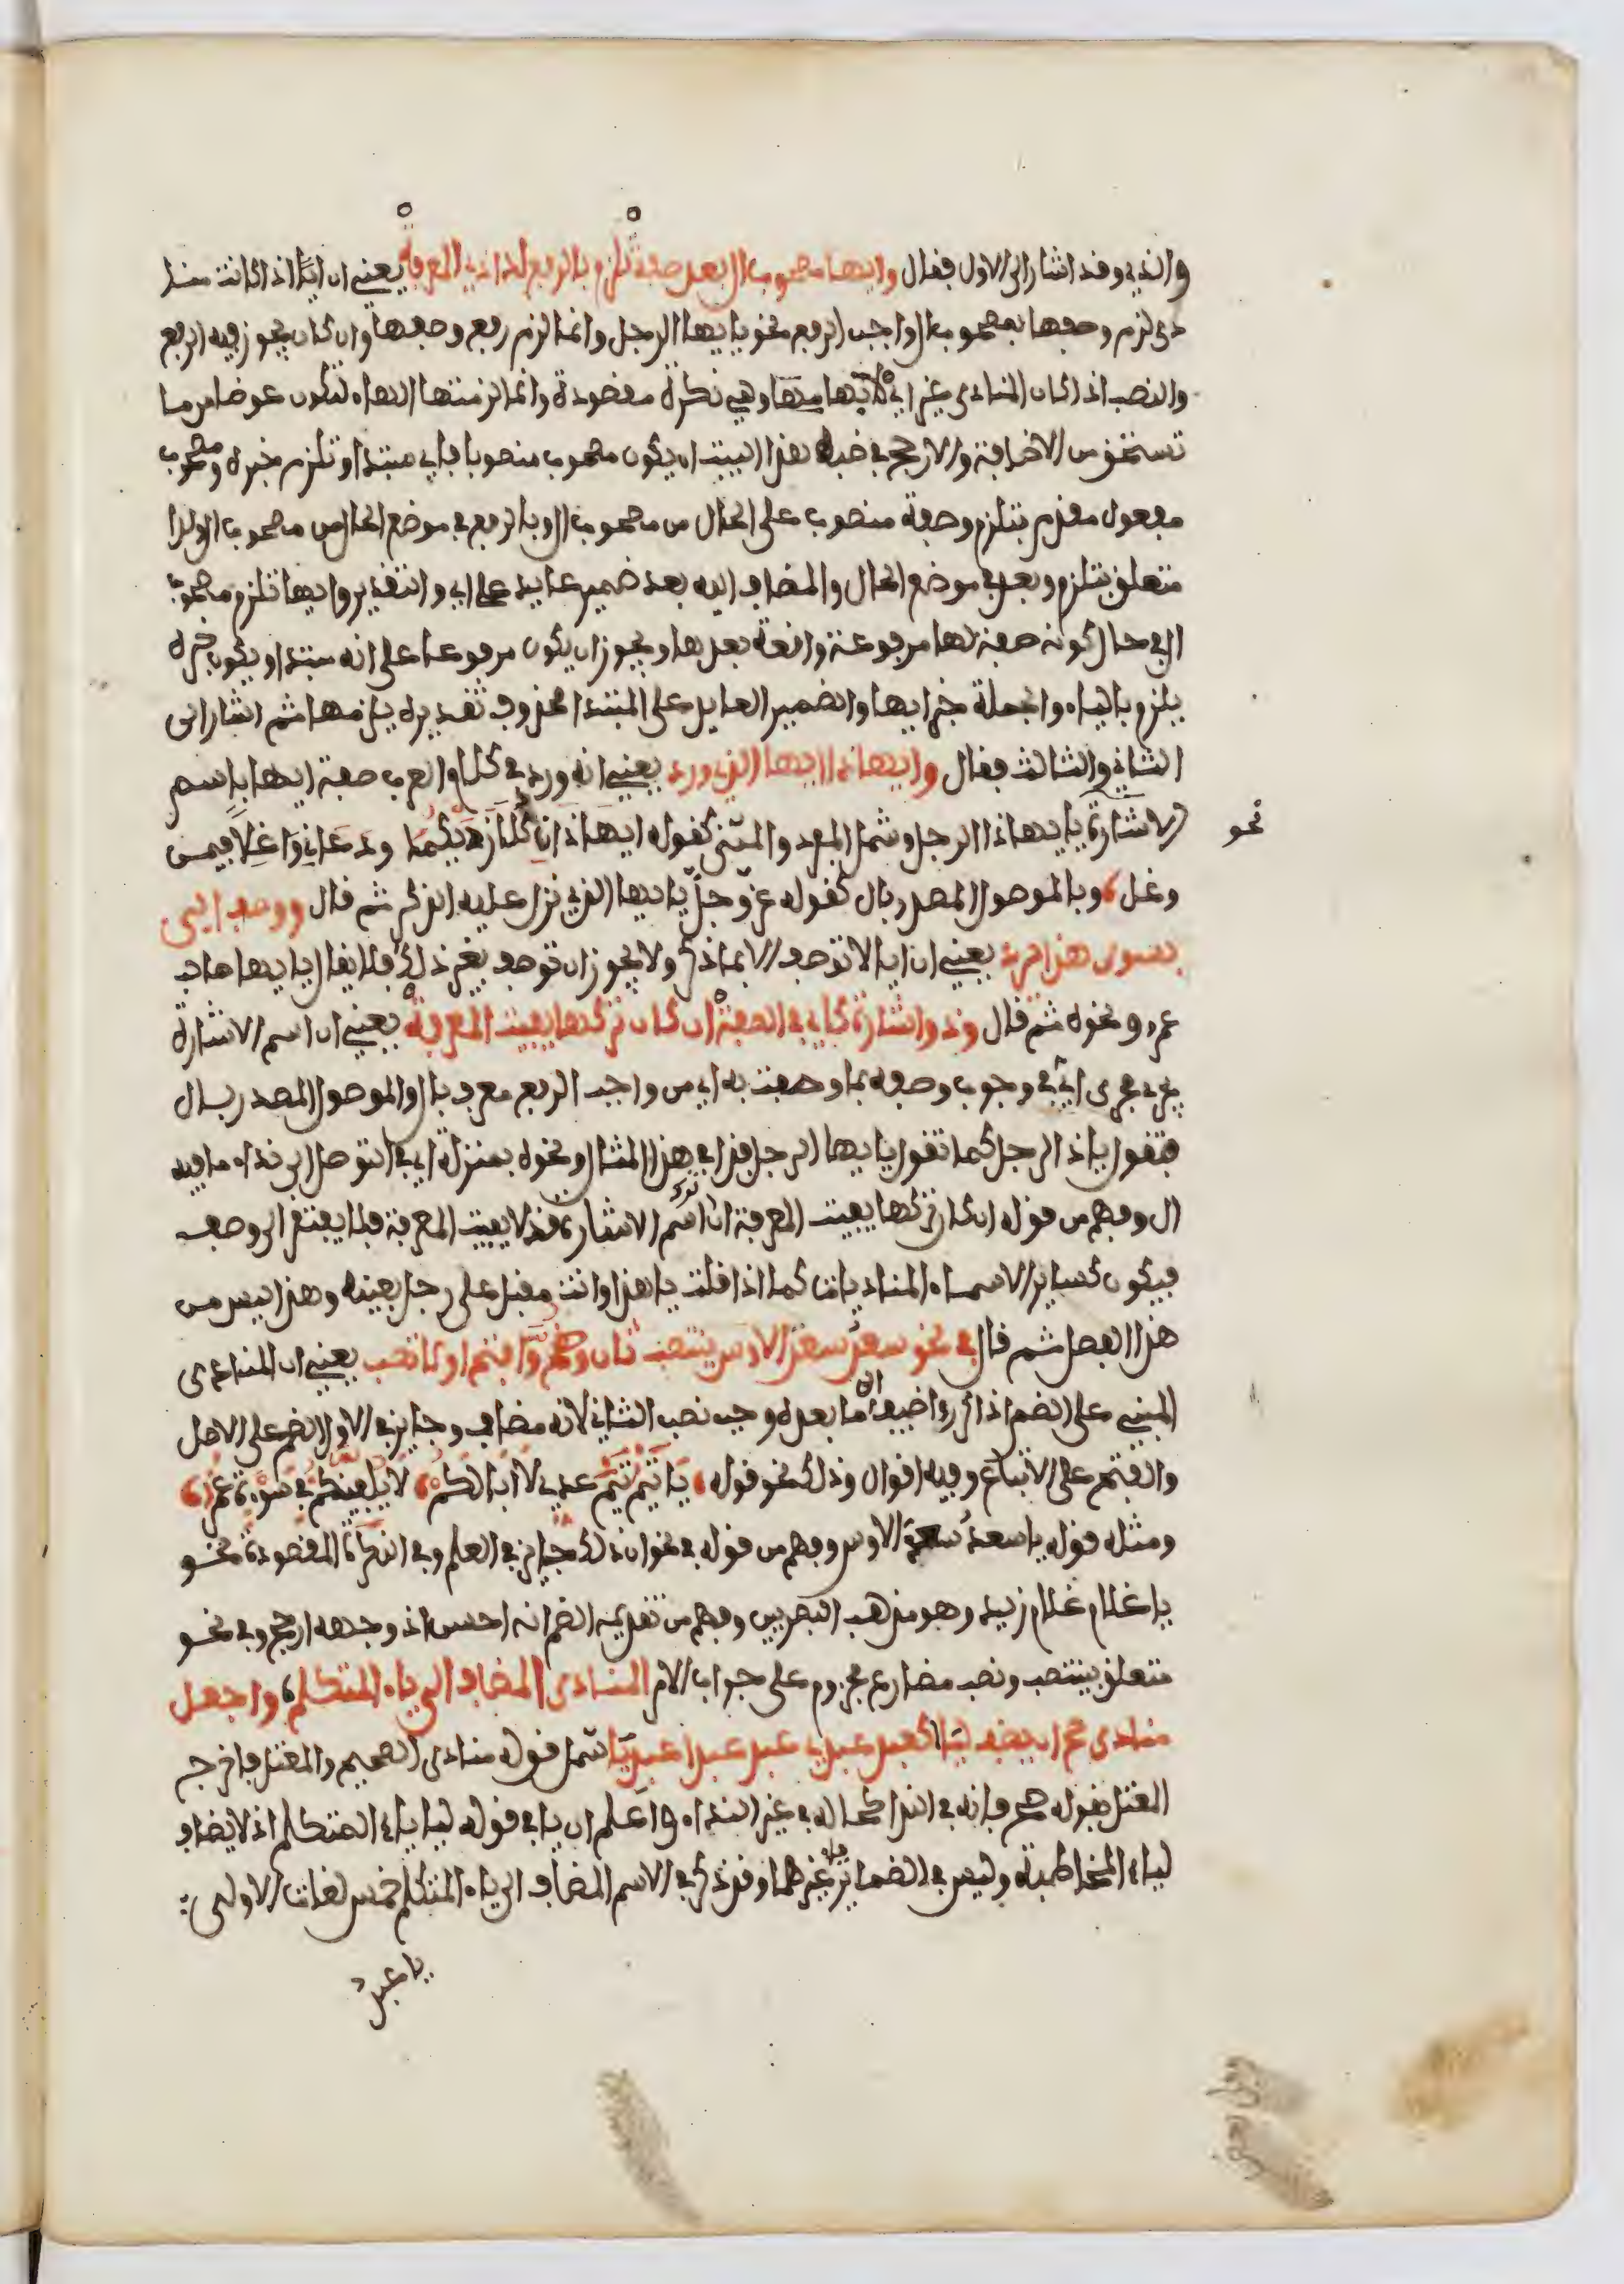 والذي وقد اشار الى الاول فقال وايها مصحوب ال بعد صفة يلزم بالرفع لدى ذي المعرفة يعني ان ايا اذا كانت منا
دى لزم وصفها بمصحوب ال واجب الرفع نحو يا ايها الرجل وانما لزم رفع وصفها وان كان يجوز فيه الرفع
والنصب اذا كان المنادى غير اي لانها مبهمة وهي نكرة مقصودة وانما لزمتها الهاء لتكون عوضا من ما
تستحق من الاضافة والارجح في ضبط هذا البيت ان يكون مصحوب منصوبا فاي مبتدا وتلزم خبره ومصحوب
مفعول مقدم بتلزم وصفة منصوب على الحال من مصحوب ال وبالرفع في موضع الحال من مصحوب ال ولدا
متعلق بتلزم وبعد في موضع الحال والمضاف اليه بعد ضمير عايد على اي والتقدير وايها تلزم مصحوب
ال في حال كونه صفة لها مرفوعة واقعة بعدها ويجوز ان يكون مرفوعا على انه مبتدا ويكون خبره
يلزم بالياء والجملة خبر ايها والضمير العايد على المبتدا محذوف تقديره يلزمها ثم اشار الى
الثاني والثالث فقال وايهاذا ايها الذي ورد يعني انه ورد في كلام العرب صفة ايها باسم
الاشارة يا ايهاذا الرجل وشمل المفرد والمثنى كقوله ايهاذان كلا زاديكما ودعاني واغلا فيمن
نحو
وغل وبالموصول المصدر بال كقوله عز وجل يا ايها الذي نزل عليه الذكر ثم قال ووصف اي
بسوى هذا يرد يعني ان ايا لا توصف الا بما ذكر ولا يجوز ان توصف بغير ذلك فلا يقال يا ايها صاحب
عمرو ونحوه ثم قال وذو اشارة كاي في الصفة ان كان تركها يفيت المعرفة يعني ان اسم الاشارة
يجري مجرى اي في وجوب وصفه بما وصفت به اي من واجب الرفع معرف بال والموصول المصدر بال
فتقول يا ذا الرجل كما تقول يا ايها الرجل فذا في هذا المثال ونحوه بمنزلة اي في التوصل الى نداء ما فيه
ال وفهم من قوله ان كان تركها يفيت المعرفة ان ترك اسم الاشارة قد لا يفيت المعرفة فلا يفتقر الى وصف
فيكون كساير الاسماء المناديات كما اذا قلت يا هذا وانت مقبل على رجل بعينه وهذا ليس من
هذا الفصل ثم قال في نحو سعد سعد الاوس ينتصب ثان وضم وافتح اولا تصب يعني ان المنادى
المبني على الضم اذا كرر واضيف الى ما بعده وجب نصب الثاني لانه مضاف وجايز في الاول الضم على الاصل
والفتح على الاتباع وفيه اقوال وذلك نحو قوله يا تيم تيم عدي لا ابا لكم لا يلفينكم في سوءة عمر
ومثله قوله يا سعد سعد الاوس وفهم من قوله في نحو ان ذلك جايز في العلم وفي النكرة المقصودة نحو
يا غلام غلام زيد وهو مذهب البصريين وفهم من تقديمه الضم انه احسن اذ وجهه ارجح وفي نحو
متعلق بينتصب ونصب مضارع مجزوم على جواب الامر المنادى المضاف الى ياء المتكلم واجعل
منادى صح ان يضف ليا كعبد عبدي عبد عبدا عبديا شمل قوله منادى الصحيح والمعتل فاخرج
المعتل بقوله صح فانه في الندا كحاله في غير النداء واعلم ان يا في قوله ليا ياء المتكلم اذ لا يضاف
لياء المخاطبة وليس في الضماير ياء غيرهما وقد ذكر في الاسم المضاف الى ياء المتكلم خمس لغات الاولى
يا عبد